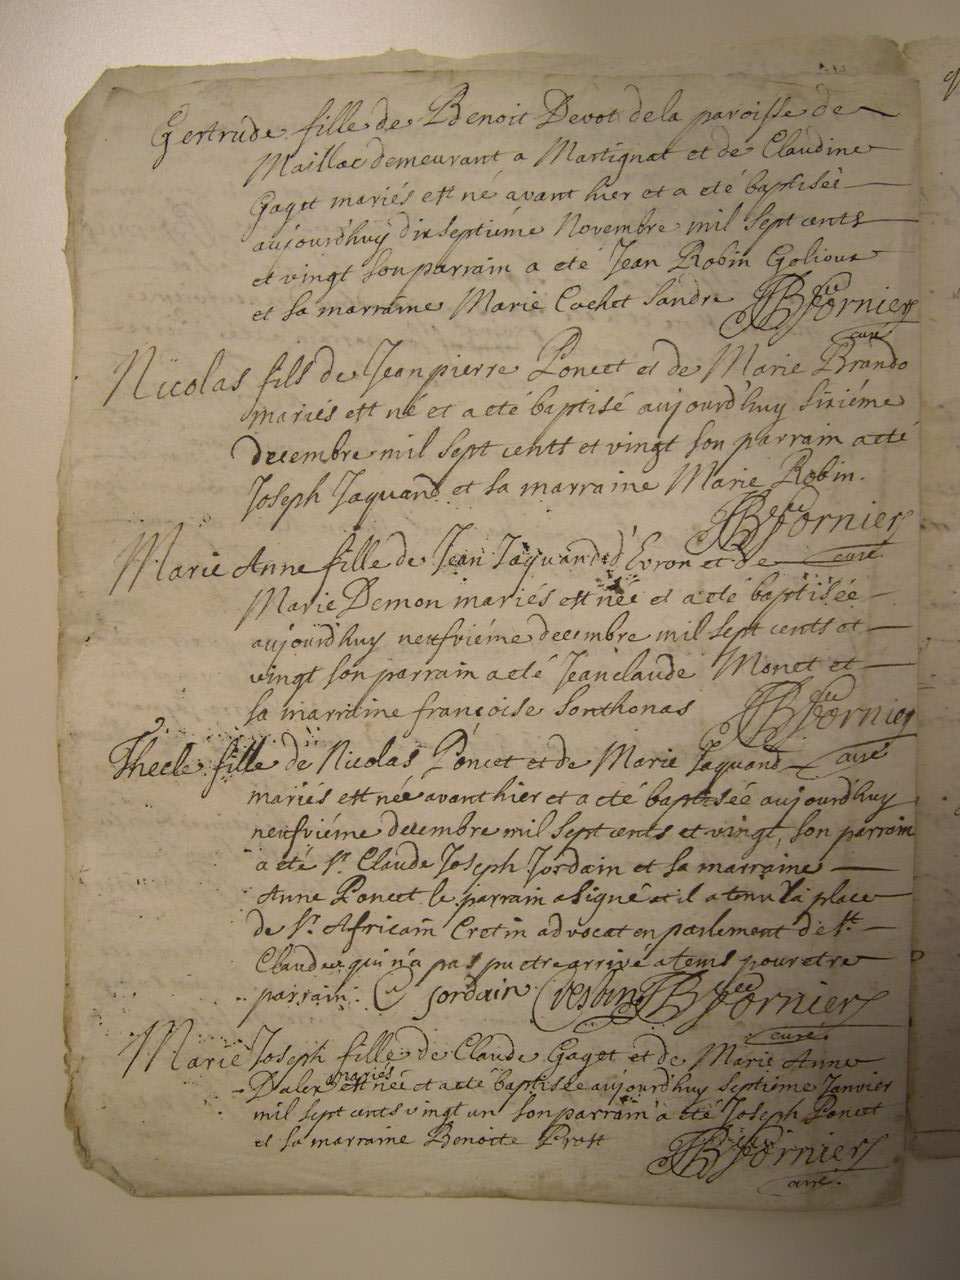 Gertrude fille de Benoit Devot de la paroisse de
Maillac demeurant a Martignat et de Claudine
Gaget mariés est né avant hier et a eté baptisée
aujourd'huy dix septiéme Novembre mil sept cents
et vingt son parrain a eté Jean Robin Golioux
et sa marraine Marie Cochet Sandre JB Fornier
curé
Nicolas fils de Jean pierre Poncet et de Marie Brando
mariés est né et a eté baptisé aujourd'huy sixiéme
decembre mil sept cents et vingt son parrain a eté
Joseph Jaquand et sa marraine Marie Robin.
JB Fornier
curé
Marie Anne fille de Jean Jaquand d'Evron et de
Marie Demon mariés est née et a eté baptisée
aujourd'huy neufviéme decembre mil sept cents et
vingt son parrain a eté Jean claude Monet et
sa marraine françoise Sonthonas JB Fornier
curé
Thecle fille de Nicolas Poncet et de Marie Jaquand
mariés est née avant hier et a eté baptisée aujourd'huy
neufviéme decembre mil sept cents et vingt, son parrain
a eté Sr. Claude Joseph Jordain et sa marraine
Anne Poncet le parrain a signé et il a tenu la place
de Sr. Africain Cretin advocat en parlement de St.
Claude qui n'a pas pu etre arrivé a tems pour etre
parrain. Jordain JB Fornier
curé
Marie Joseph fille de Claude Gaget et de Marie Anne
Dalex mariés est née et a eté baptisée aujourd'huy septiéme Janvier
mil sept cents vingt un son parrain a eté Joseph Poncet
et sa marraine Benoite Prost JB Fornier
curé.